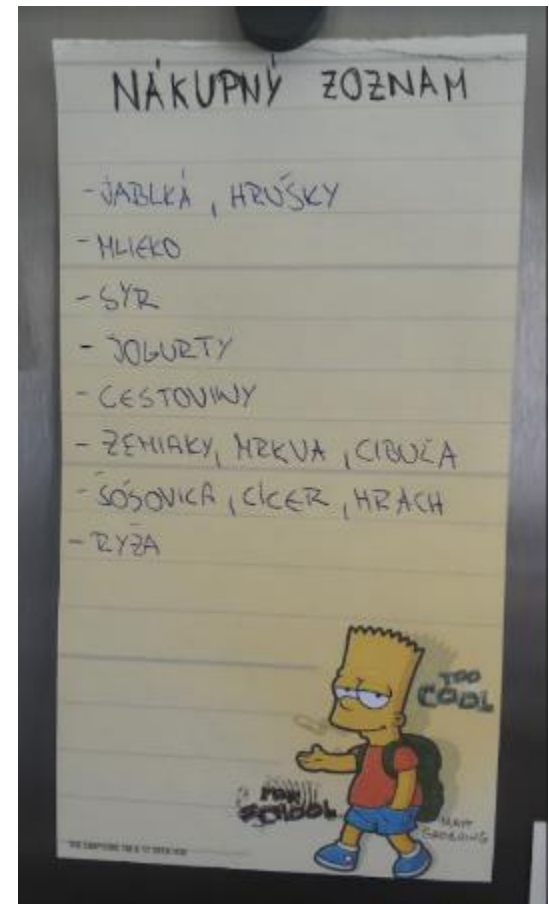 NÁKUPNÝ ZOZNAM
- JABLKÁ, HRUŠKY
- MLIEKO
- SYR
- JOGURTY
- CESTOVINY
- ZEMIAKY, MRKVA, CIBUĽA
- ŠOŠOVICA, CÍCER, HRACH
- RYŽA
TOO
COOL
FOR
SCHOOL
MATT
GROENING